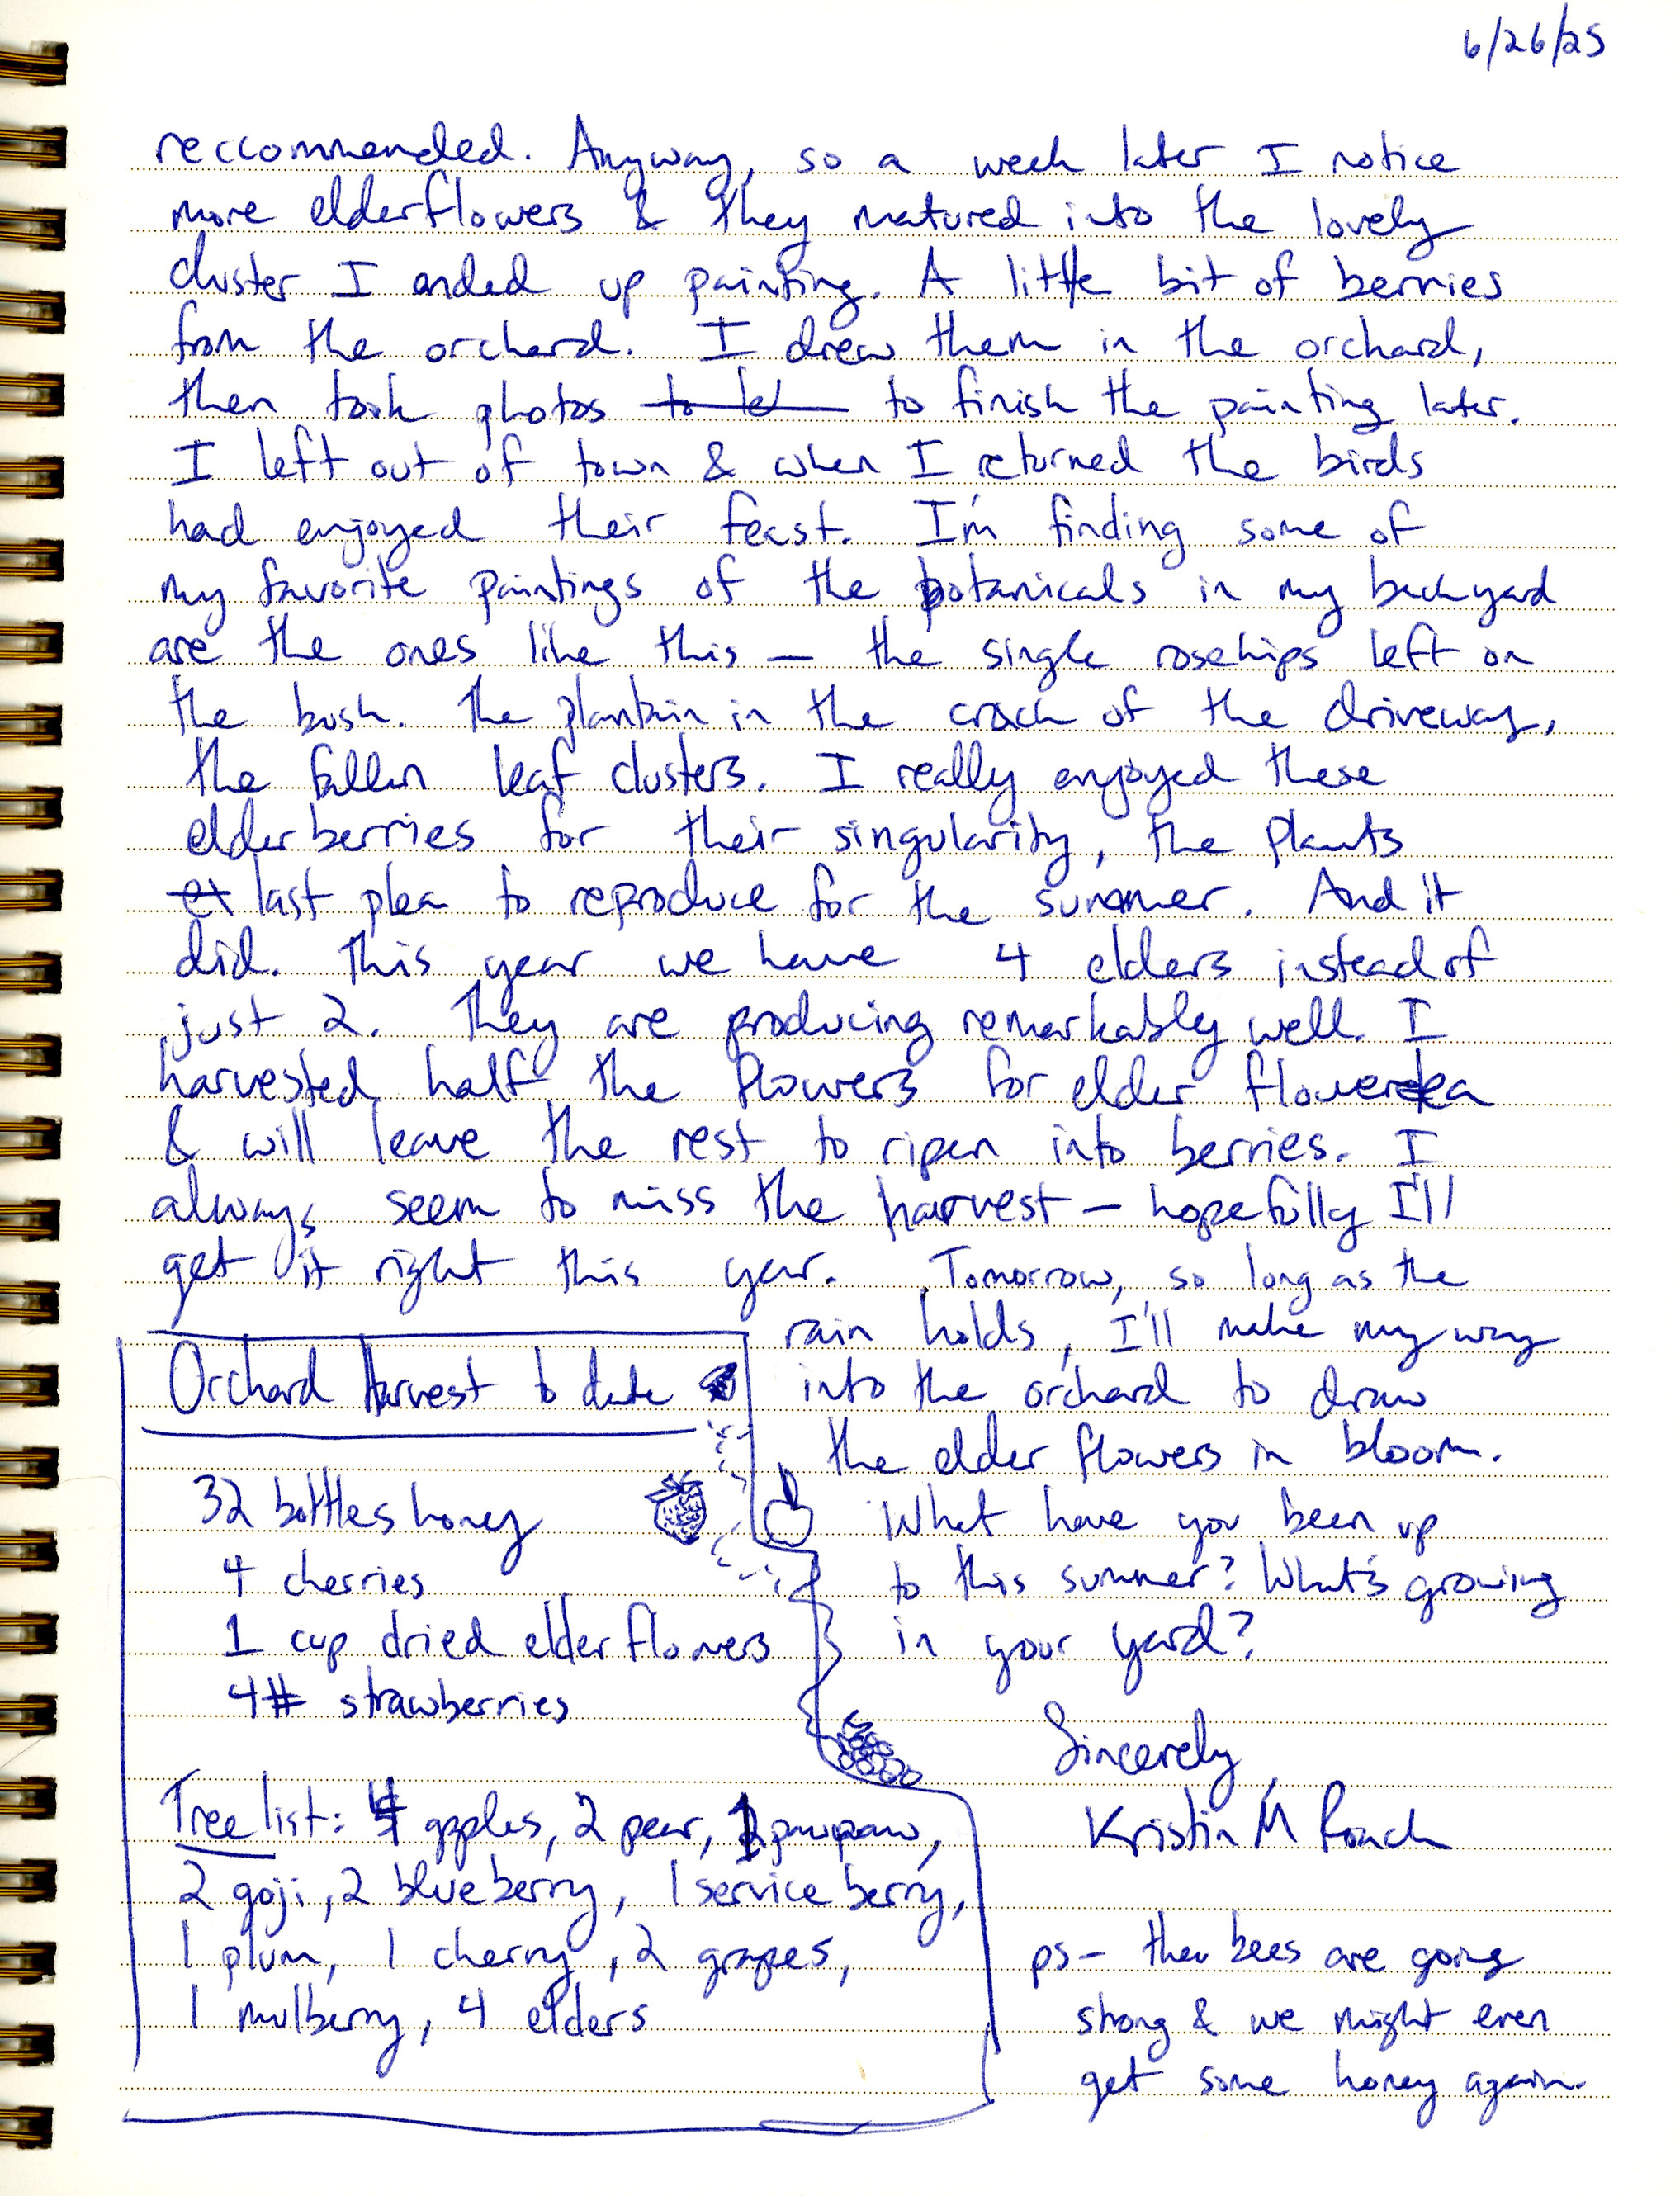 6/26/25
reccommended. Anyway, so a week later I notice
more elderflowers & they matured into the lovely
cluster I ended up painting. A little bit of berries
from the orchard. I drew them in the orchard,
then took photos to finish the painting later.
I left out of town & when I returned the birds
had enjoyed their feast. I'm finding some of
my favorite paintings of the botanicals in my backyard
are the ones like this — the single rosehips left on
the bush. The plantain in the crack of the driveway,
the fallen leaf clusters. I really enjoyed these
elderberries for their singularity, the plants
last plea to reproduce for the summer. And it
did. This year we have 4 elders instead of
just 2. They are producing remarkably well. I
harvested half the flowers for elder flower tea
& will leave the rest to ripen into berries. I
always seem to miss the harvest — hopefully I'll
get it right this year. Tomorrow, so long as the
rain holds, I'll make my way
into the orchard to draw
the elder flowers in bloom.
What have you been up
to this summer? What's growing
in your yard?
Sincerely,
Kristin M Roach
ps— the bees are going
strong & we might even
get some honey again.
Orchard Harvest to date
32 bottles honey
4 cherries
1 cup dried elderflowers
4# strawberries
Tree list: 4 apples, 2 pear, pawpaw,
2 goji, 2 blueberry, 1 service berry,
1 plum, 1 cherry, 2 grapes,
1 mulberry, 4 elders